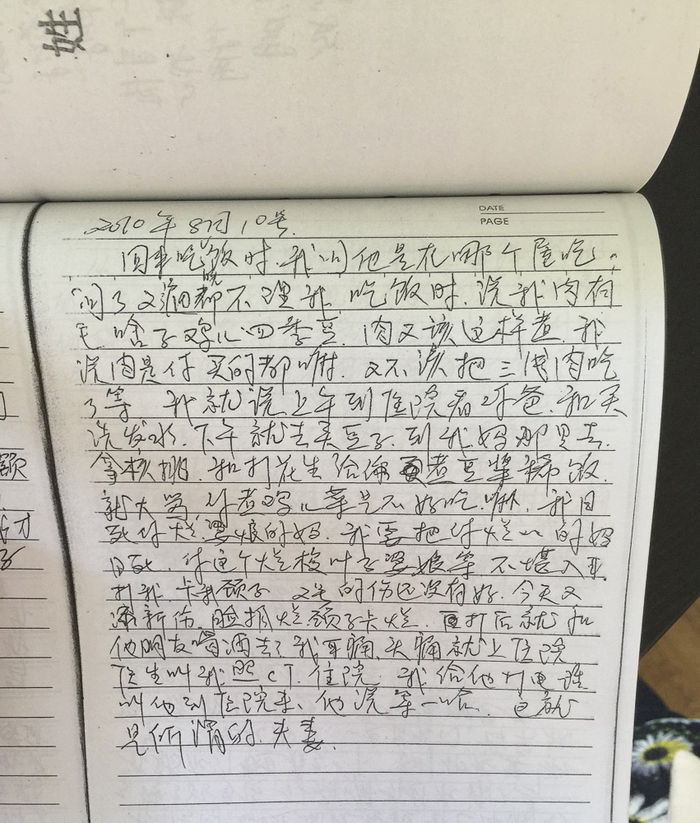 姓
DATE
PAGE
2010年8月10号.
回来吃饭时.我问他是在哪个屋吃.
问了又 都不理我 吃饭时.说我肉有
毛 啥子鸡儿四季豆.肉又该这样煮 我
说肉是你买的都嘛.又不该把三线肉吃
了等 我就说上午到医院看 爸.和买
洗发水.下午就去卖豆子.到我妈那里去.
拿核桃.和打花生给你煮豆浆稀饭.
就大骂.你煮鸡儿菜是不好吃.嘛.我日
死你烂婆娘的妈.我要把你烂 的妈
日死.你这个烂 叶子婆娘等 不堪入耳
打我 卡我颈子 的伤还没有好.今天又
添新伤.脸抓烂颈子卡烂. 打后就和
他朋友喝酒去了我耳痛.头痛就上医院
医生叫我照CT.住院 我给他打电话
叫他到医院来.他说等一哈. 这就
是所谓的.夫妻.